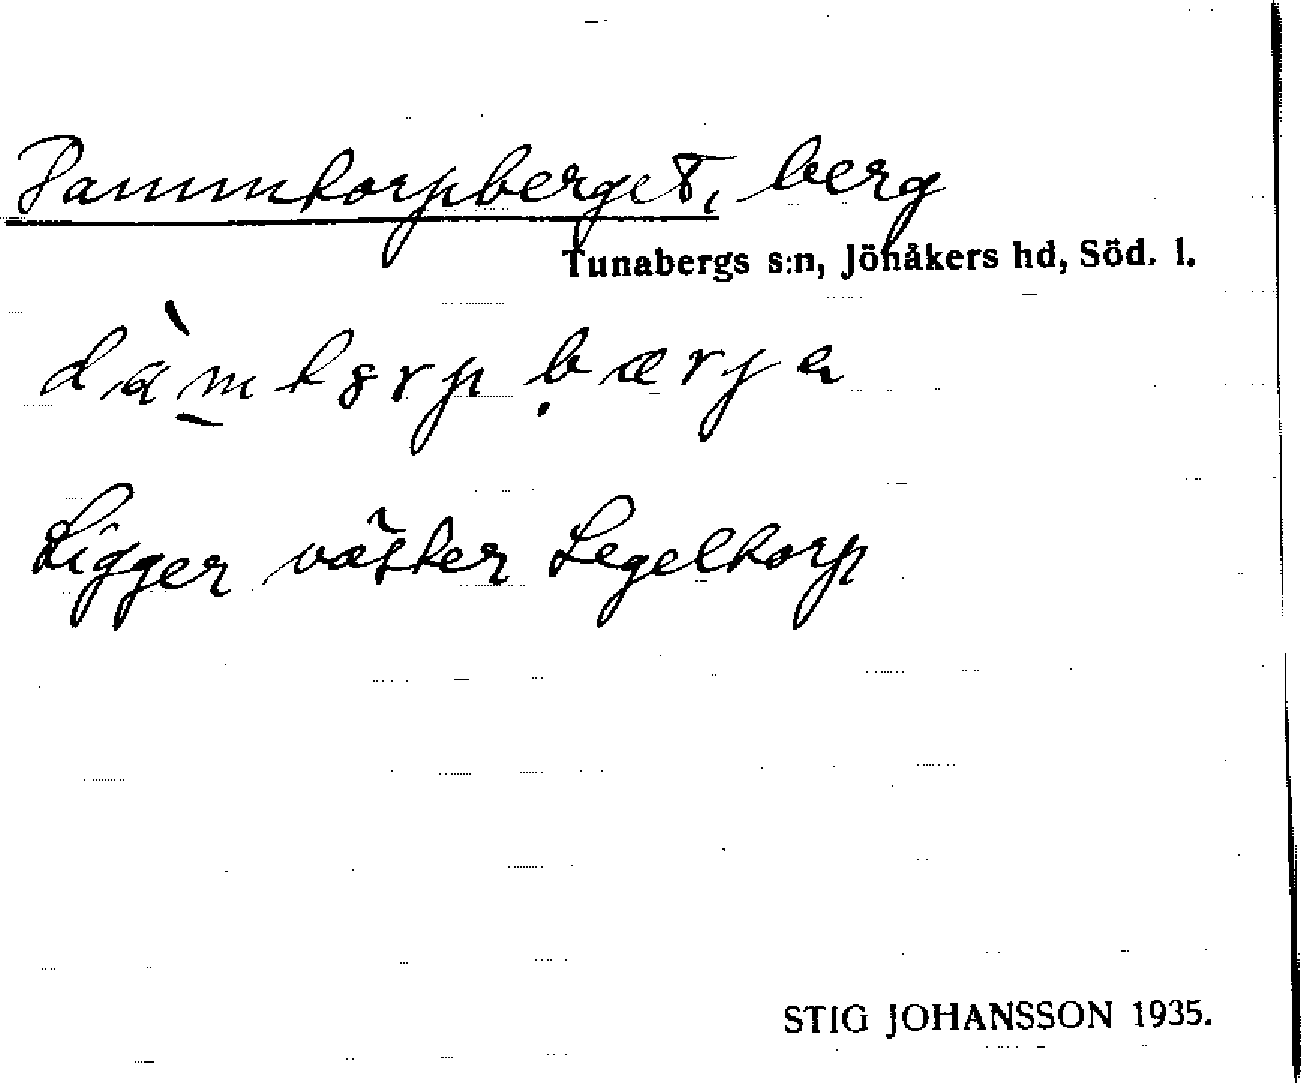 Dammtorpberget, berg
Tunabergs s:n, Jönåkers hd, Söd. l.
dàmtorpbærja
Ligger väster Segeltorp
STIG JOHANSSON 1935.